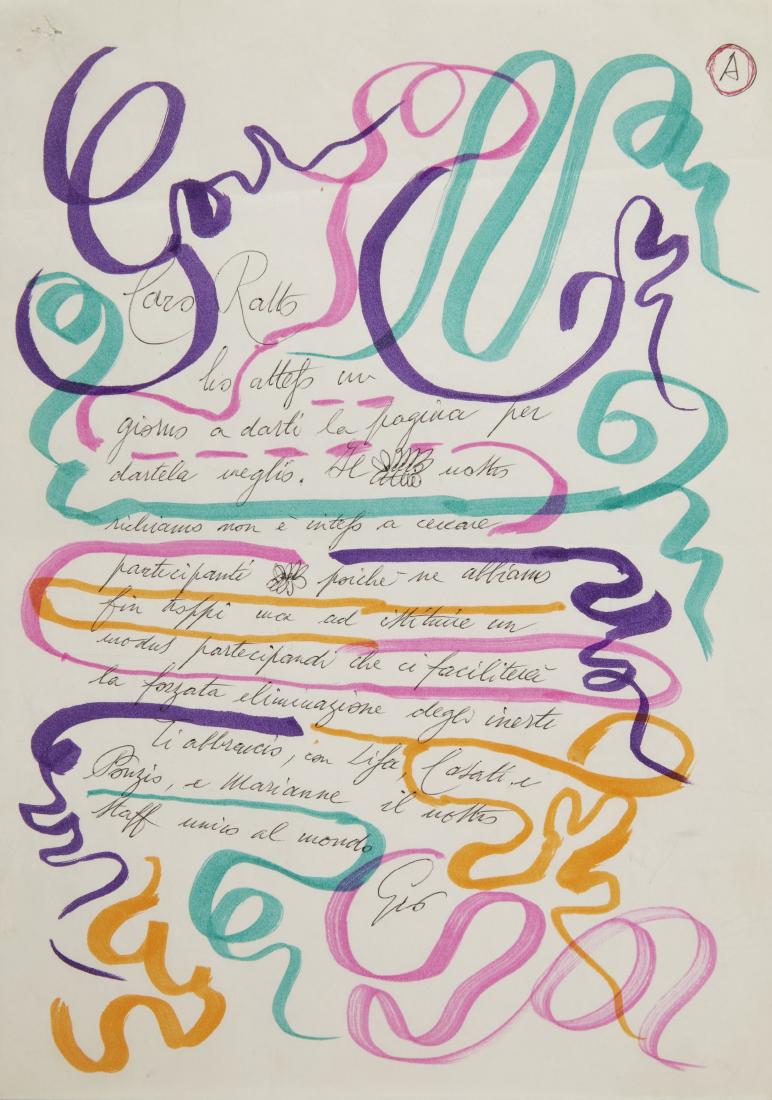 A
Caro Ratto
ho atteso un
giorno a darti la pagina per
dartela meglio. Il nostro
richiamo non è inteso a cercare
partecipanti poiché ne abbiamo
fin troppi ma ad istituire un
modus partecipandi che ci faciliterà
la forzata eliminazione degli inerti
Ti abbraccio, con Lisa, Casati e
Ponzio, e Marianne il nostro
staff unico al mondo
Gio